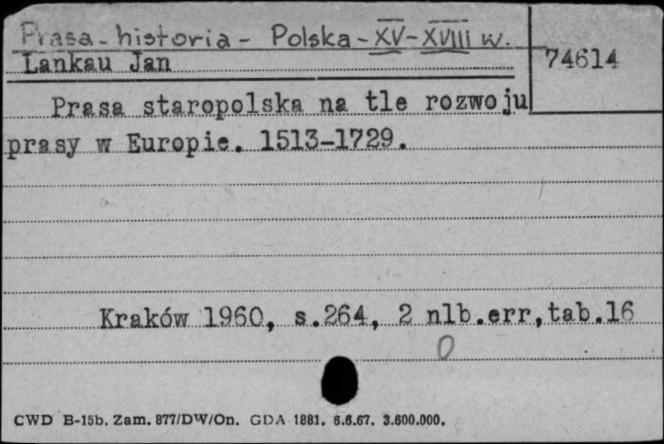 Prasa - historia - Polska - XV - XVIII w.
Lankau Jan
74614
Prasa staropolska na tle rozwoju
prasy w Europie. 1513-1729.
Kraków 1960, s.264, 2 nlb.err,tab.16
0
CWD B-15b. Zam. 877/DW/On. GDA 1881. 6.6.67. 3.600.000.